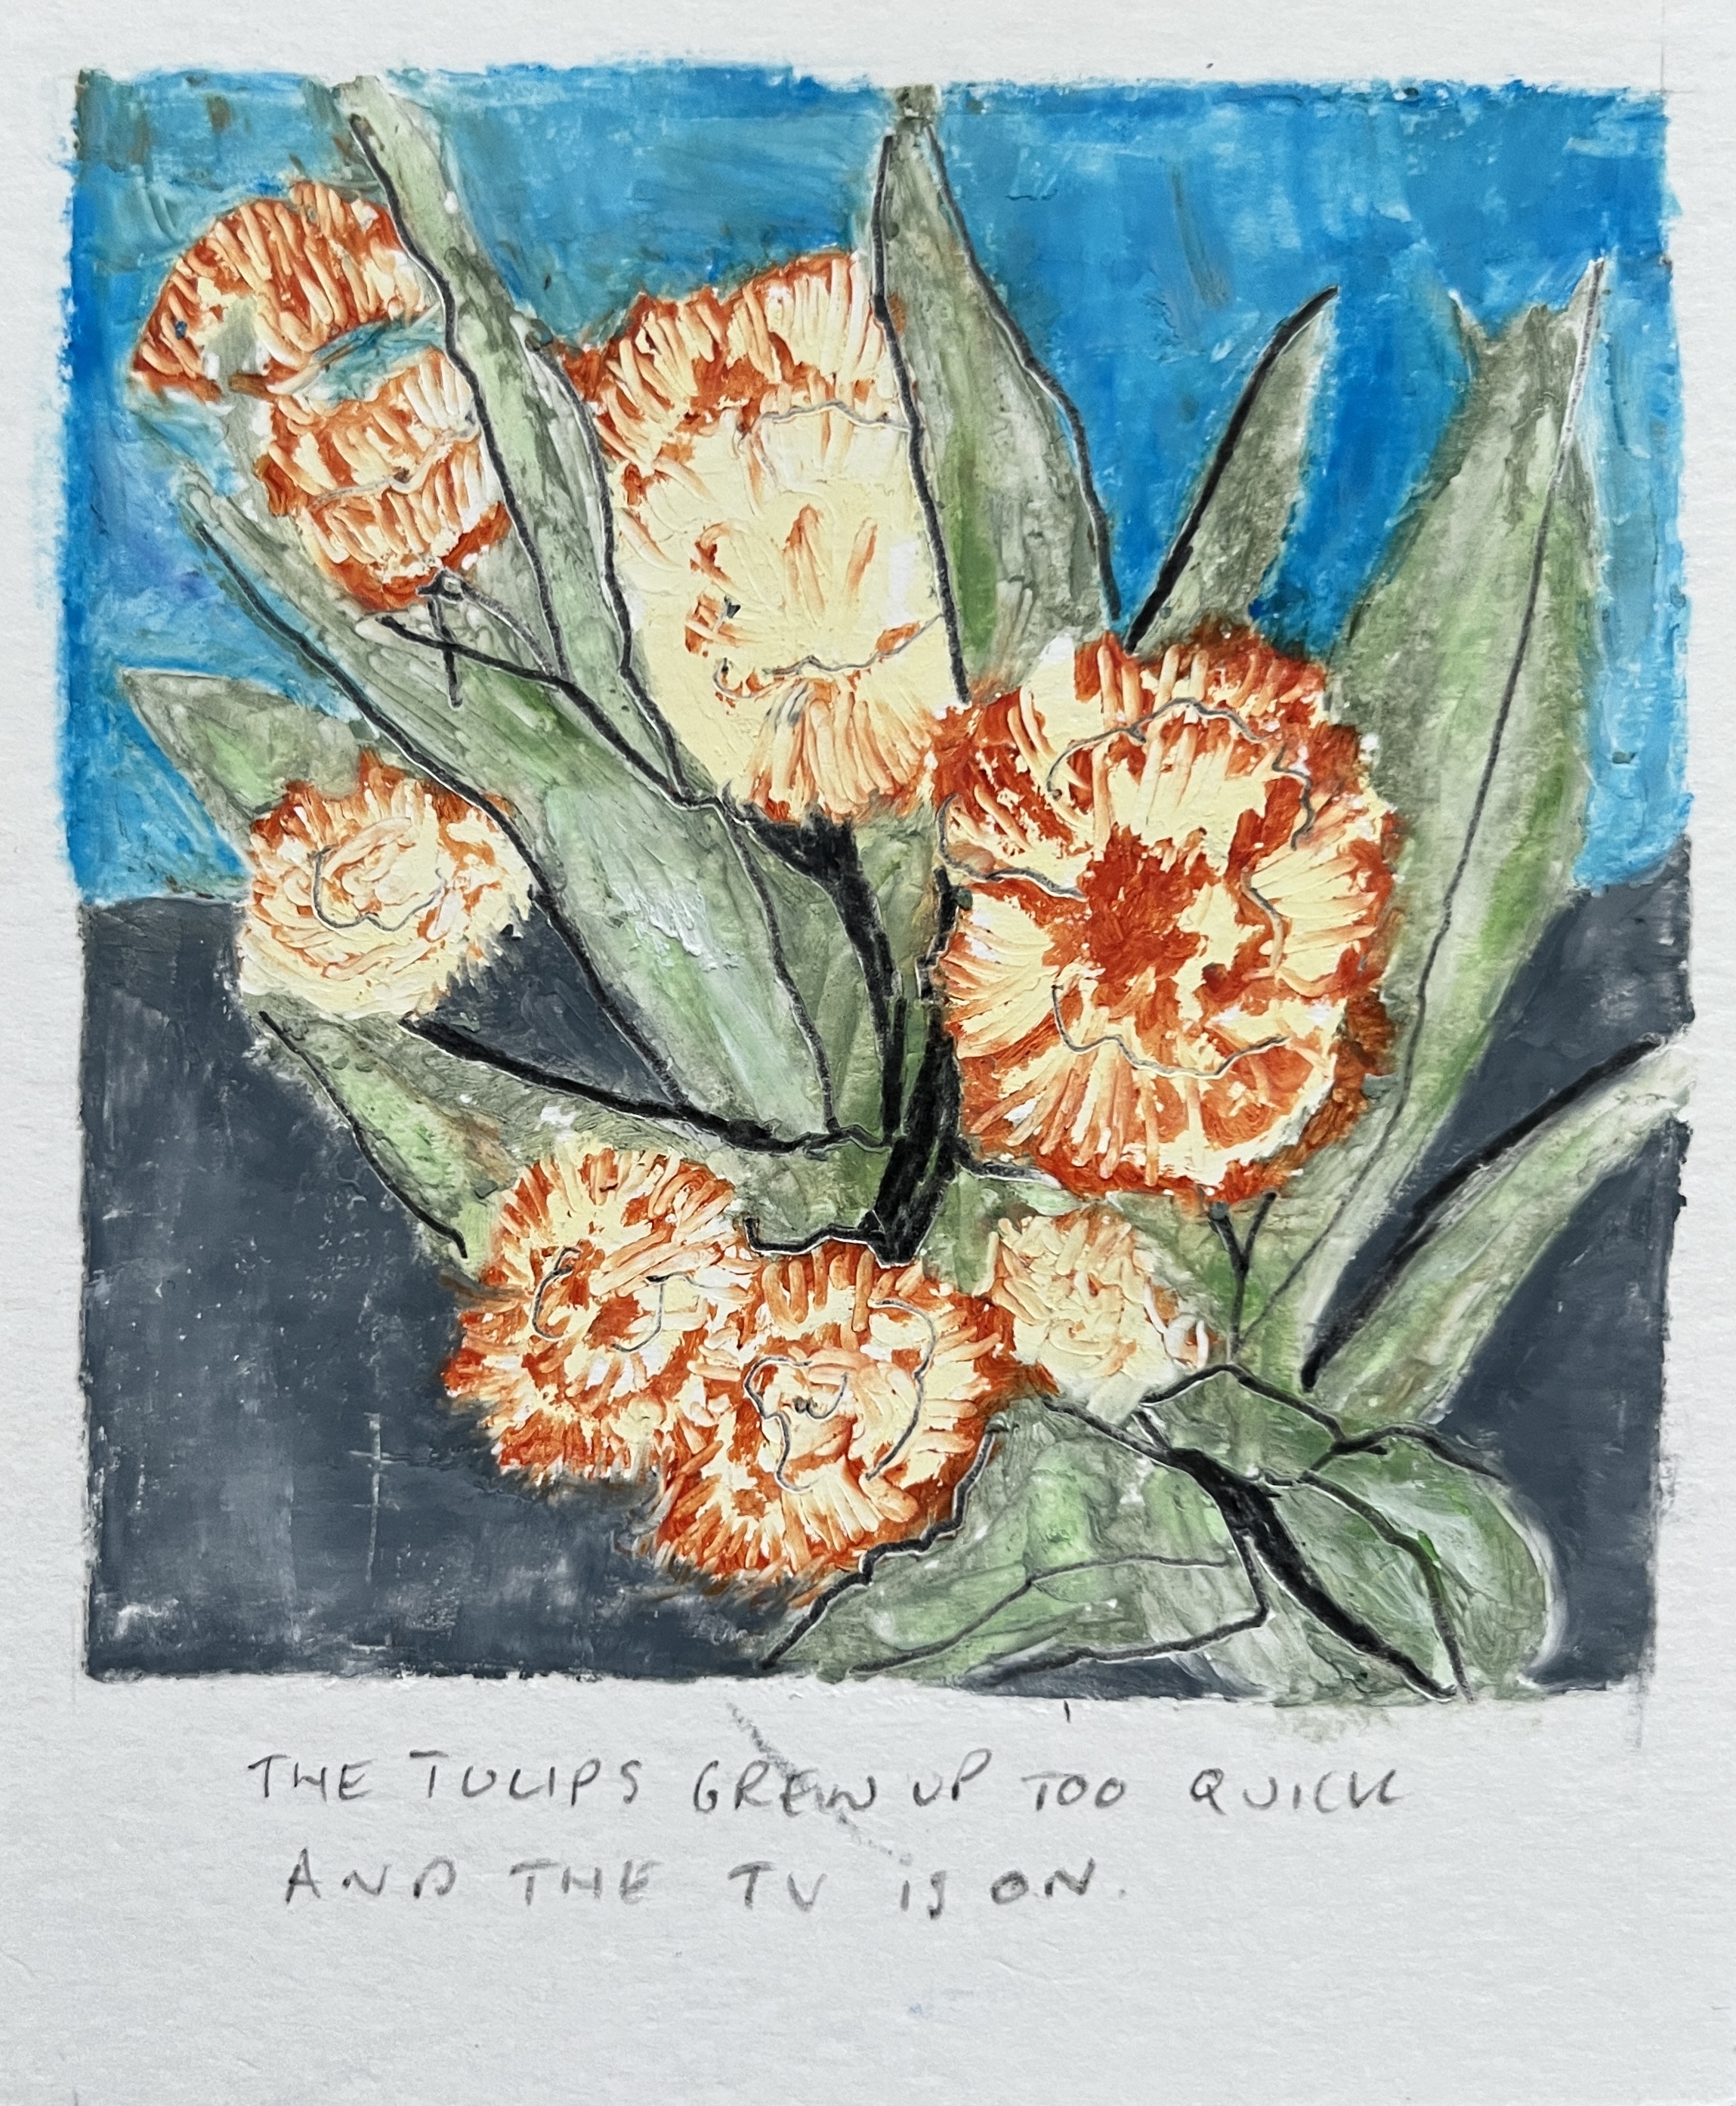 THE TULIPS GREW UP TOO QUICK
AND THE TV IS ON.